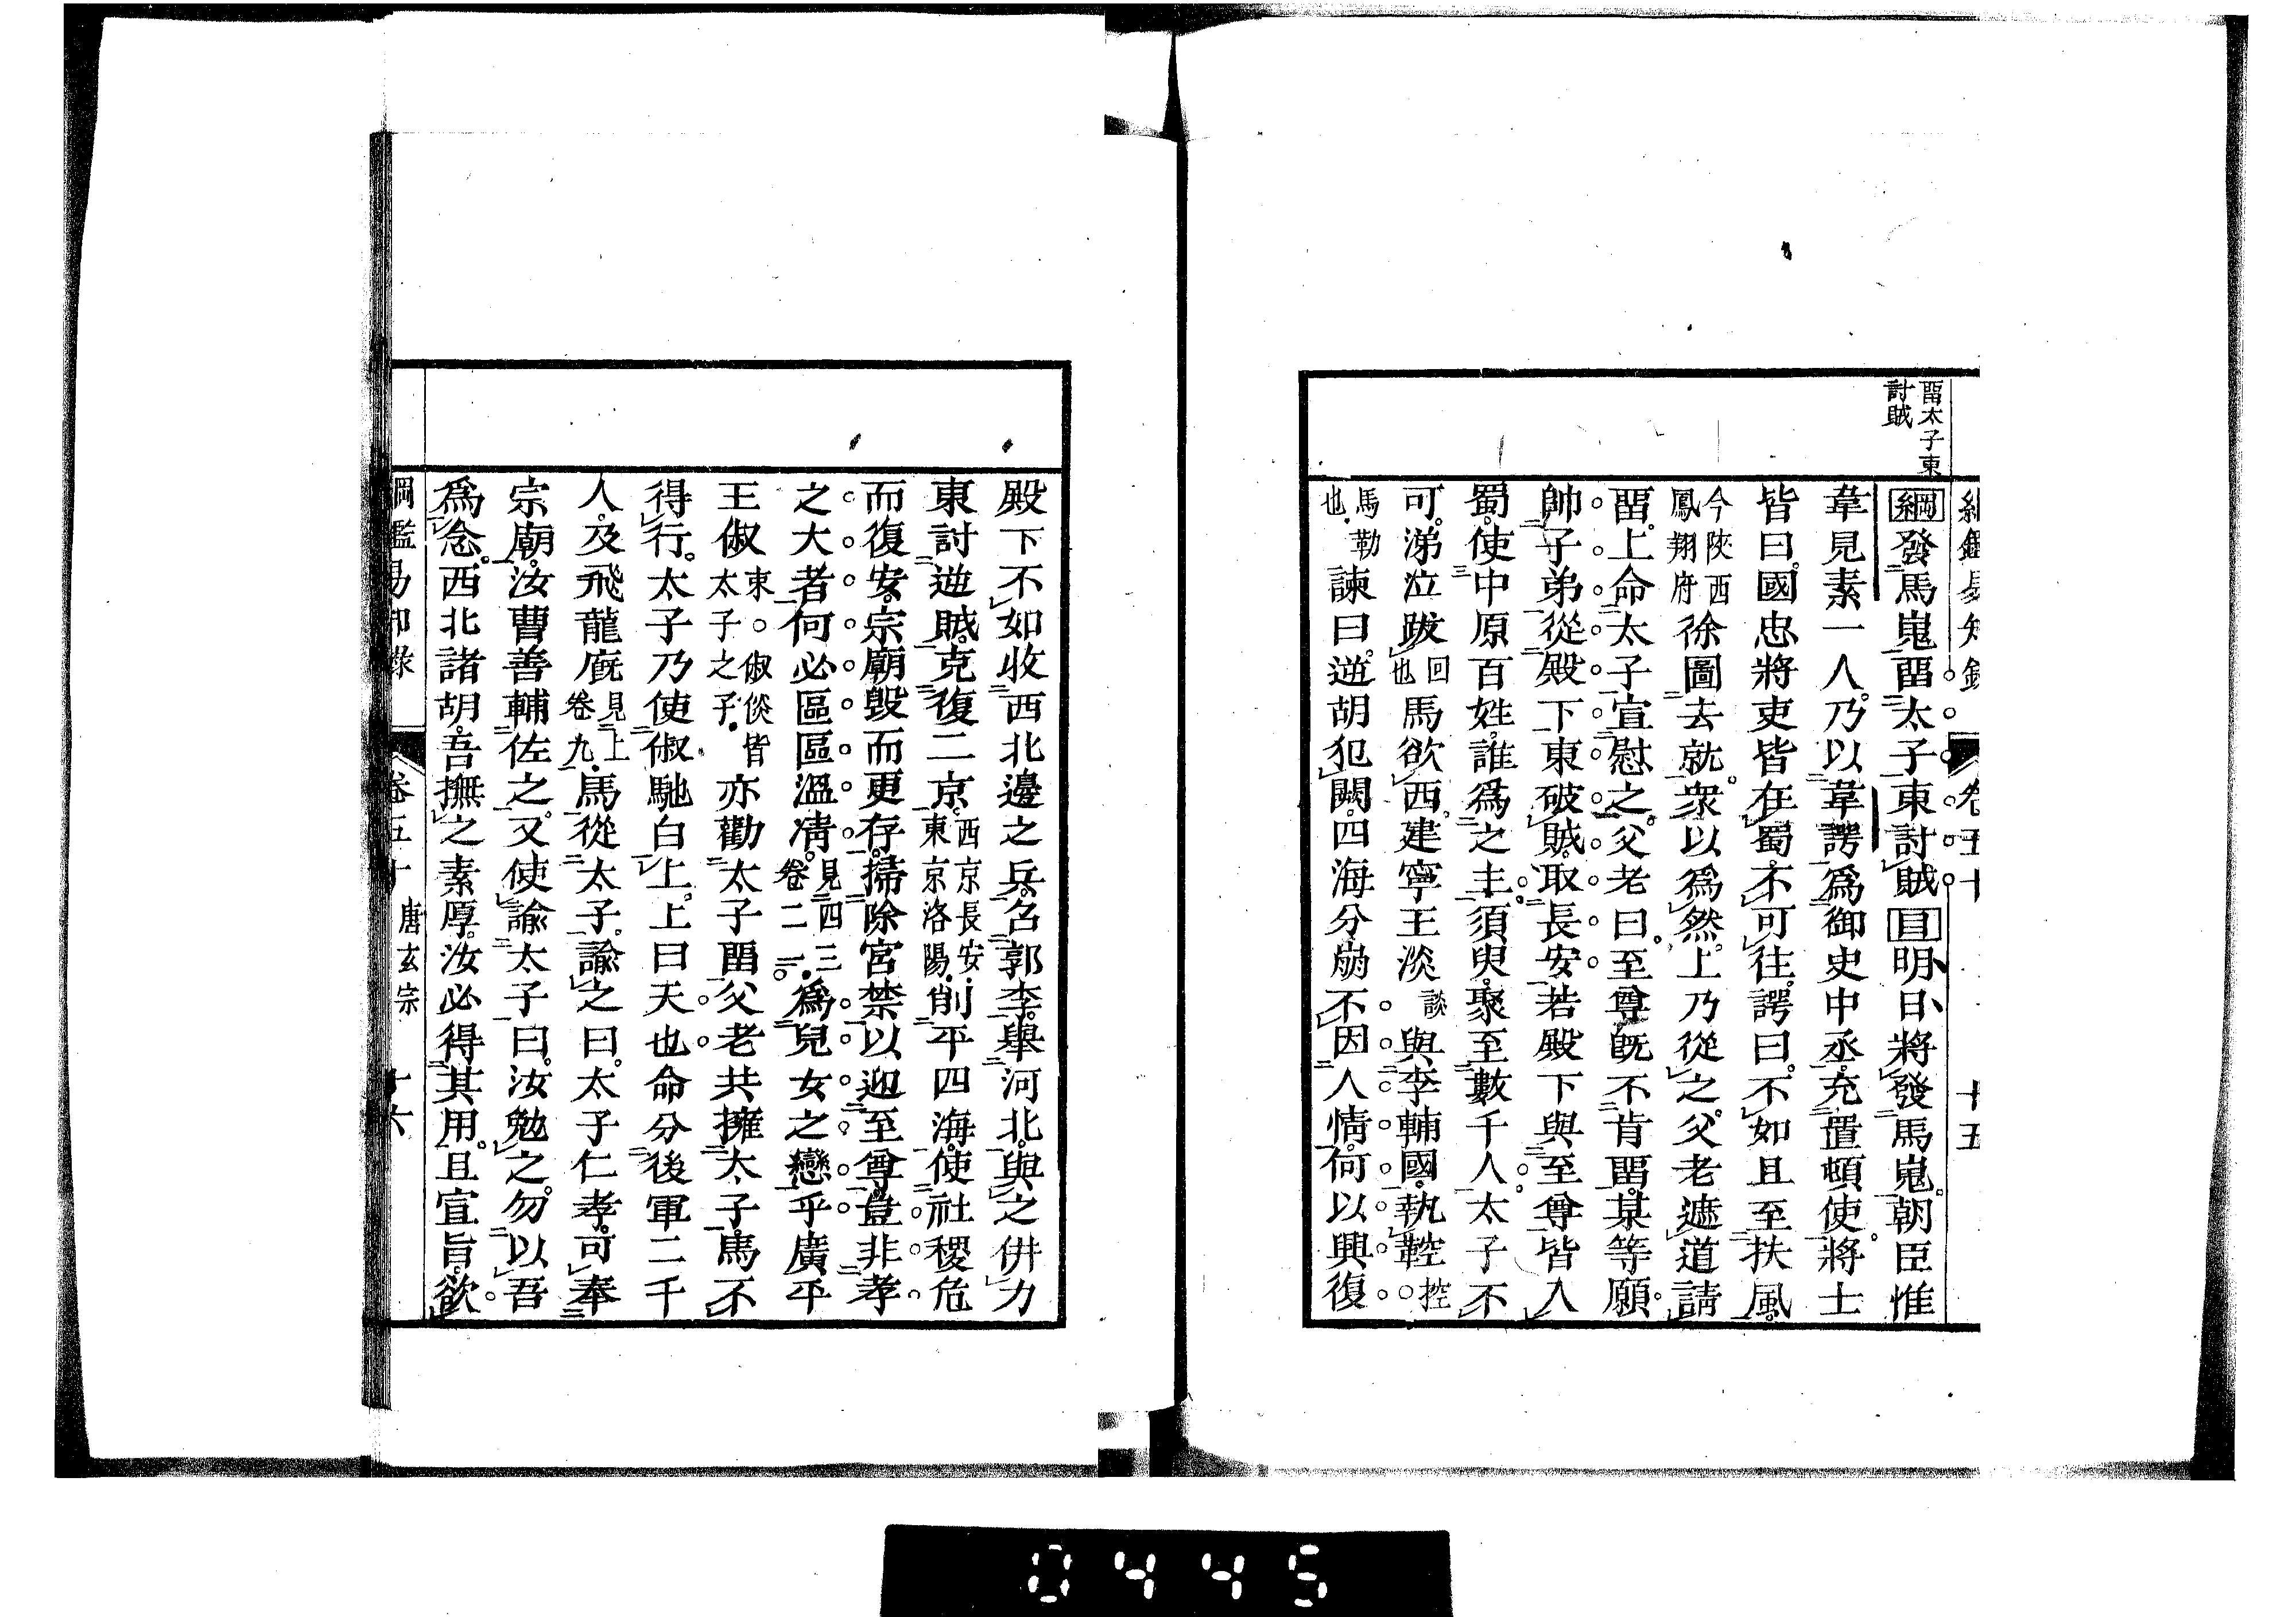 畱太子東
討賊
綱鑑易知錄 卷五十 十五
綱發馬嵬畱太子東討賊目明日將發馬嵬朝臣惟
韋見素一人乃以韋諤爲御史中丞充置頓使將士
皆曰國忠將吏皆在蜀不可往諤曰不如且至扶風
今陝西
鳳翔府
徐圖去就衆以爲然上乃從之父老遮道請
畱上命太子宣慰之父老曰至尊旣不肯畱某等願
帥子弟從殿下東破賊取長安若殿下與至尊皆入
蜀使中原百姓誰爲之主須臾聚至數千人太子不
可涕泣跋
回
也
馬欲西建寧王淡
談
與李輔國執鞚
控
馬勒
也
諫曰逆胡犯闕四海分崩不因人情何以興復
殿下不如收西北邊之兵召郭李舉河北與之併力
東討逆賊克復二京
西京長安
東京洛陽
削平四海使社稷危
而復安宗廟毀而更存掃除宮禁以迎至尊豈非孝
之大者何必區區溫凊
見四三
卷二一
爲兒女之戀乎廣平
王俶
東俶倓皆
太子之子
亦勸太子畱父老共擁太子馬不
得行太子乃使俶馳白上上曰天也命分後軍二千
人及飛龍廐
見上
卷九
馬從太子諭之曰太子仁孝可奉
宗廟汝曹善輔佐之又使諭太子曰汝勉之勿以吾
爲念西北諸胡吾撫之素厚汝必得其用且宣旨欲
綱鑑易知錄 卷五十 唐玄宗 十六
0445